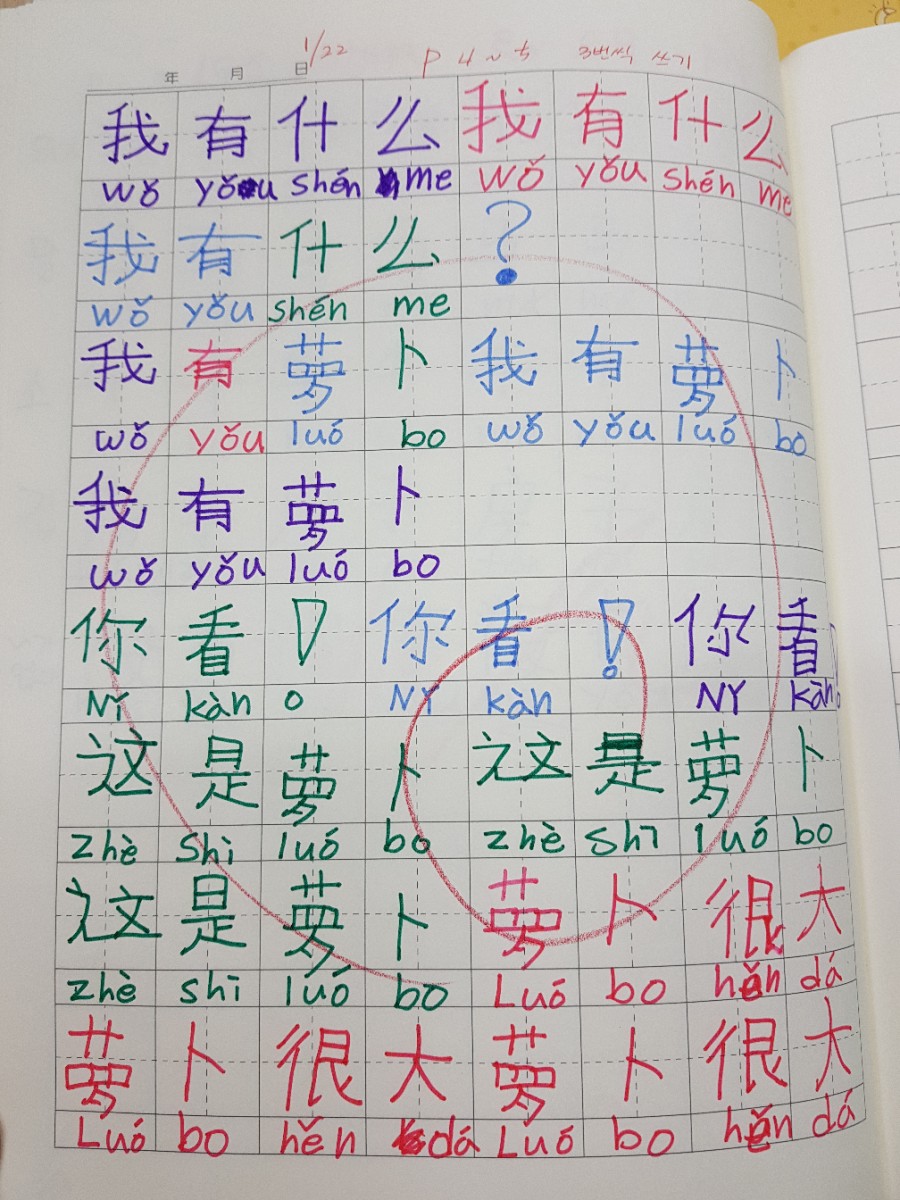 1/22 P 4~5 3번씩 쓰기
年 月 日
我有什么我有什么
wǒ yǒu shén me wǒ yǒu shén me
我有什么?
wǒ yǒu shén me
我有萝卜我有萝卜
wǒ yǒu luó bo wǒ yǒu luó bo
我有萝卜
wǒ yǒu luó bo
你看!你看!你看
NY kàn NY kàn NY kàn
这是萝卜这是萝卜
zhè shì luó bo zhè shī luó bo
这是萝卜萝卜很大
zhè shī luó bo Luó bo hěn dá
萝卜很大萝卜很大
Luó bo hěn dá Luó bo hěn dá